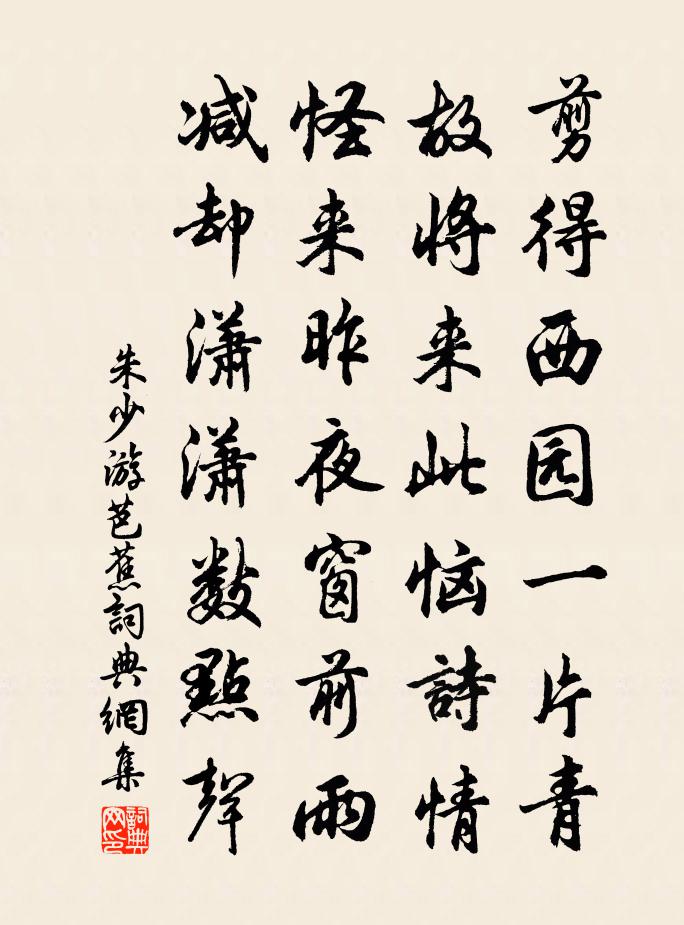 剪得西园一片青
故将来此恼詩情
怪来昨夜窗前雨
减却潇潇数點聲
朱少游芭蕉詞典網集
詞典
网印